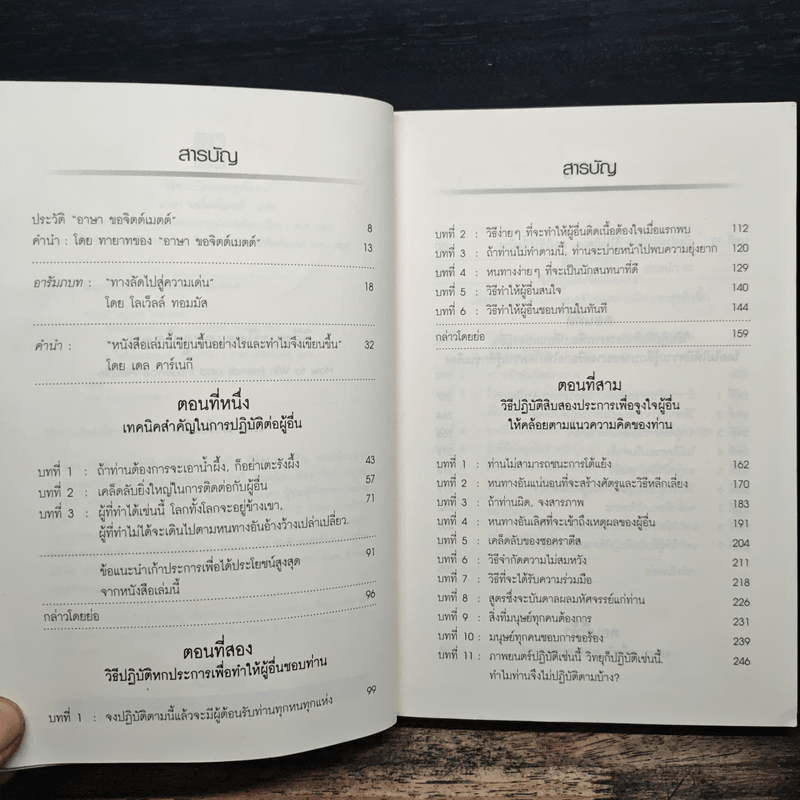 สารบัญ
ประวัติ "อาษา ขอจิตต์เมตต์" 8
คำนำ : โดย ทายาทของ "อาษา ขอจิตต์เมตต์" 13
อารัมภบท : "ทางลัดไปสู่ความเด่น" 18
โดย โลเว็ลล์ ทอมมัส
คำนำ : "หนังสือเล่มนี้เขียนขึ้นอย่างไรและทำไมจึงเขียนขึ้น" 32
โดย เดล คาร์เนกี
ตอนที่หนึ่ง
เทคนิคสำคัญในการปฏิบัติต่อผู้อื่น
บทที่ 1 : ถ้าท่านต้องการจะเอาน้ำผึ้ง, ก็อย่าเตะรังผึ้ง 43
บทที่ 2 : เคล็ดลับยิ่งใหญ่ในการติดต่อกับผู้อื่น 57
บทที่ 3 : ผู้ที่ทำได้เช่นนี้ โลกทั้งโลกจะอยู่ข้างเขา, 71
ผู้ที่ทำไม่ได้จะเดินไปตามหนทางอันอ้างว้างเปล่าเปลี่ยว.
ข้อแนะนำเก้าประการเพื่อได้ประโยชน์สูงสุด 91
จากหนังสือเล่มนี้
กล่าวโดยย่อ 96
ตอนที่สอง
วิธีปฏิบัติหกประการเพื่อทำให้ผู้อื่นชอบท่าน
บทที่ 1 : จงปฏิบัติตามนี้แล้วจะมีผู้ต้อนรับท่านทุกหนทุกแห่ง 99
สารบัญ
บทที่ 2 : วิธีง่ายๆ ที่จะทำให้ผู้อื่นติดเนื้อต้องใจเมื่อแรกพบ 112
บทที่ 3 : ถ้าท่านไม่ทำดามนี้, ท่านจะบ่ายหน้าไปพบความยุ่งยาก 120
บทที่ 4 : หนทางง่ายๆ ที่จะเป็นนักสนทนาที่ดี 129
บทที่ 5 : วิธีทำให้ผู้อื่นสนใจ 140
บทที่ 6 : วิธีทำให้ผู้อื่นชอบท่านในทันที 144
กล่าวโดยย่อ 159
ตอนที่สาม
วิธีปฏิบัติสิบสองประการเพื่อจูงใจผู้อื่น
ให้คล้อยตามแนวความคิดของท่าน
บทที่ 1 : ท่านไม่สามารถชนะการโต้แย้ง 162
บทที่ 2 : หนทางอันแน่นอนที่จะสร้างศัตรูและวิธีหลีกเลี่ยง 170
บทที่ 3 : ถ้าท่านผิด, จงสารภาพ 183
บทที่ 4 : หนทางอันเลิศที่จะเข้าถึงเหตุผลของผู้อื่น 191
บทที่ 5 : เคล็ดลับของซอคราตีส 204
บทที่ 6 : วิธีจำกัดความไม่สมหวัง 211
บทที่ 7 : วิธีที่จะได้รับความร่วมมือ 218
บทที่ 8 : สูตรซึ่งจะบันดาลผลมหัศจรรย์แก่ท่าน 226
บทที่ 9 : สิ่งที่มนุษย์ทุกคนต้องการ 231
บทที่ 10 : มนุษย์ทุกคนชอบการขอร้อง 239
บทที่ 11 : ภาพยนตร์ปฏิบัติเช่นนี้ วิทยุก็ปฏิบัติเช่นนี้. 246
ทำไมท่านจึงไม่ปฏิบัติตามบ้าง?